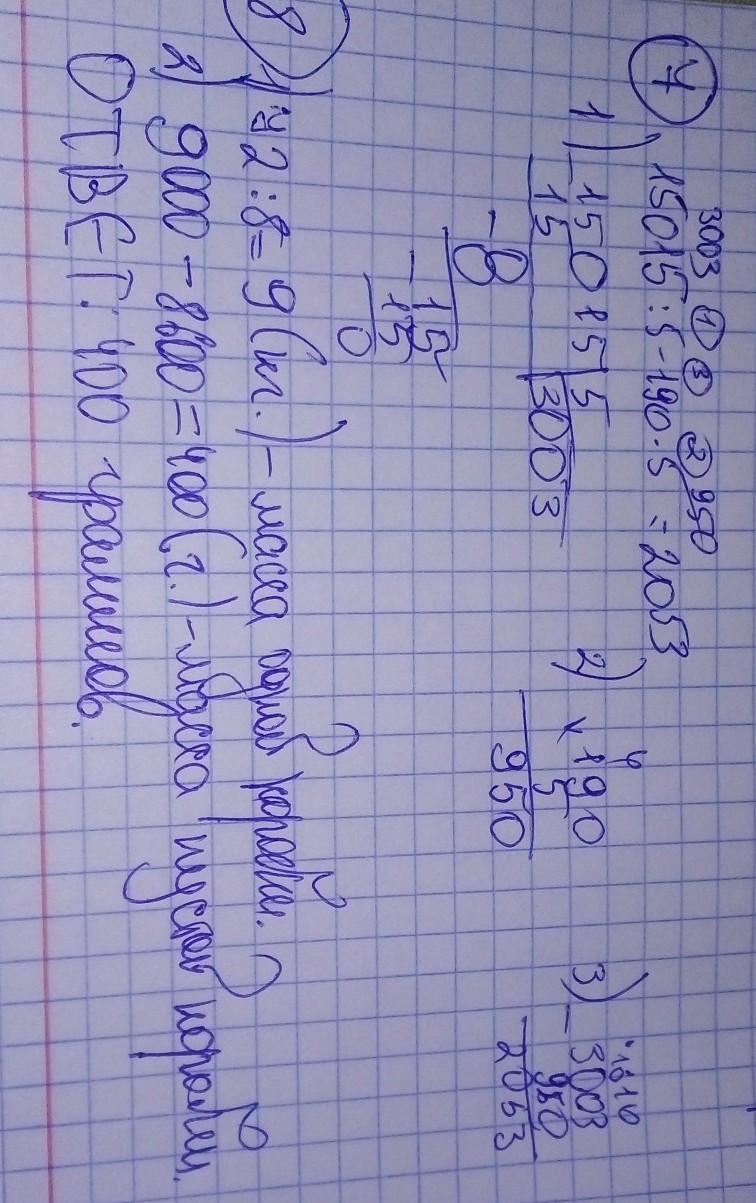 7
3003 ① ③ ② 950
15015 : 5 - 190 · 5 = 2053
1) 15015 | 5
15 | 3003
- 0
0
- 15
15
0
2) 4
× 190
5
950
3) 10 10
- 3003
950
2053
8
1) 72 : 8 = 9 (кг.) - масса одной коробки.
2) 9000 - 8600 = 400 (г.) - масса пустой коробки.
ОТВЕТ: 400 граммов.